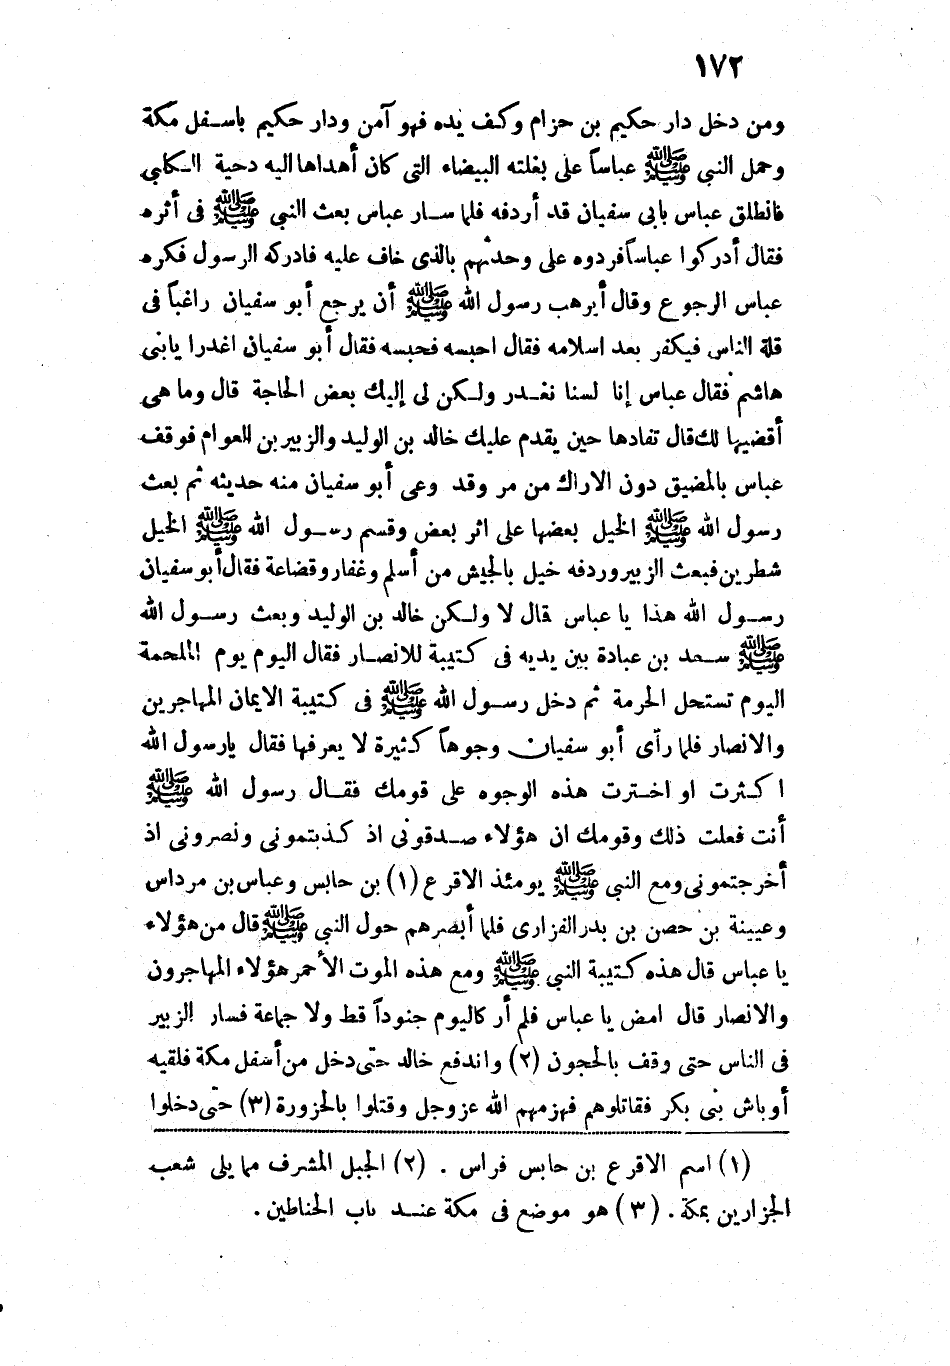 ١٧٢
ومن دخل دار حكيم بن حزام وكف يده فهو آمن ودار حكيم باسفل مكة
وحمل النبي ﷺ عباساً على بغلته البيضاء التى كان أهداها اليه دحية الكلبي
فانطلق عباس بابى سفيان قد أردفه فلما سار عباس بعث النبي ﷺ فى أثره
فقال أدركوا عباساً فردوه على وحدثهم بالذى خاف عليه فادركه الرسول فكره
عباس الرجوع وقال أيرهب رسول الله ﷺ أن يرجع أبو سفيان راغباً فى
قلة الناس فيكفر بعد اسلامه فقال احبسه فحبسه فقال أبو سفيان اغدرا يابنى
هاشم فقال عباس إنا لسنا نغدر ولكن لى إليك بعض الحاجة قال وما هى
أقضيها لك قال تفادها حين يقدم عليك خالد بن الوليد والزبير بن العوام فوقف
عباس بالمضيق دون الاراك من مر وقد وعى أبو سفيان منه حديثه ثم بعث
رسول الله ﷺ الخيل بعضها على اثر بعض وقسم رسول الله ﷺ الخيل
شطرين فبعث الزبير وردفه خيل بالجيش من أسلم وغفار وقضاعة فقال أبو سفيان
رسول الله هذا يا عباس قال لا ولكن خالد بن الوليد وبعث رسول الله
ﷺ سعد بن عبادة بين يديه فى كتيبة للانصار فقال اليوم يوم الملحمة
اليوم تستحل الحرمة ثم دخل رسول الله ﷺ فى كتيبة الايمان المهاجرين
والانصار فلما رآى أبو سفيان وجوهاً كثيرة لا يعرفها فقال يارسول الله
اكثرت او اخترت هذه الوجوه على قومك فقال رسول الله ﷺ
أنت فعلت ذلك وقومك ان هؤلاء صدقونى اذ كذبتمونى ونصرونى اذ
أخرجتمونى ومع النبي ﷺ يومئذ الاقرع (١) بن حابس وعباس بن مرداس
وعيينة بن حصن بن بدر الفزارى فلما أبصرهم حول النبي ﷺ قال من هؤلاء
يا عباس قال هذه كتيبة النبي ﷺ ومع هذه الموت الأحمر هؤلاء المهاجرون
والانصار قال امض يا عباس فلم أر كاليوم جنوداً قط ولا جماعة فسار الزبير
فى الناس حتى وقف بالحجون (٢) واندفع خالد حتى دخل من أسفل مكة فلقيه
أوباش بنى بكر فقاتلوهم فهزمهم الله عز وجل وقتلوا بالحزورة (٣) حتى دخلوا
(١) اسم الاقرع بن حابس فراس . (٢) الجبل المشرف مما يلى شعب
الجزارين بمكة . (٣) هو موضع فى مكة عند باب الحناطين .